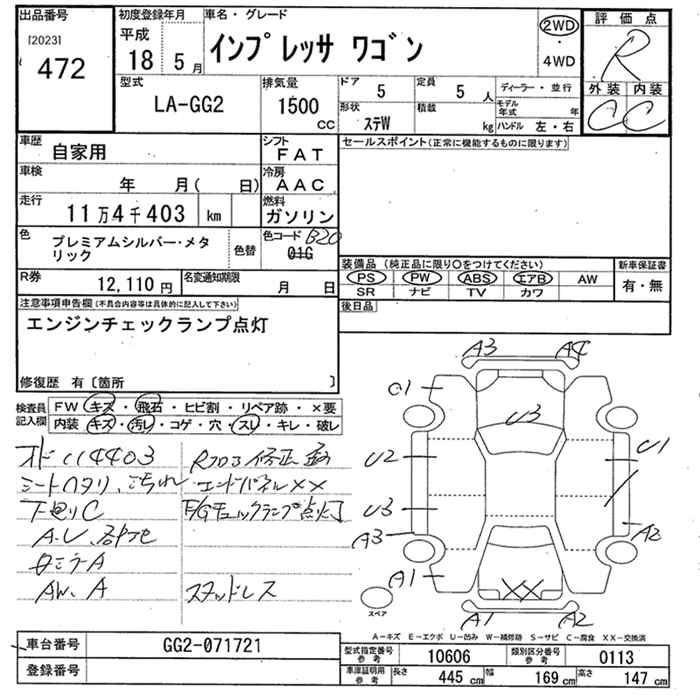 出品番号 [2023] 472
初度登録年月 平成 18 5月
車名・グレード インプレッサ ワゴン
2WD・4WD
評価点 R
外装 内装
C C
型式 LA-GG2
排気量 1500 CC
ドア 5
定員 5 人
ディーラー・並行
形状 ステW
積載 kg
モデル年式 年
ハンドル 左・右
車歴 自家用
シフト FAT
セールスポイント(正常に機能するものに限ります)
車検 年 月( 日)
冷房 AAC
走行 11万4千403 km
燃料 ガソリン
色 プレミアムシルバー・メタリック
色替
色コード B20 01G
装備品(純正品に限り○をつけてください)
新車保証書
PS PW ABS エアB AW
有・無
SR ナビ TV カワ
R券 12,110円
名変通知期限 月 日
後日品
注意事項申告欄(不具合内容等は具体的に記入して下さい)
エンジンチェックランプ点灯
修復歴 有〔箇所 〕
検査員記入欄
FW キズ・飛石・ヒビ割・リペア跡・×要
内装 キズ・汚レ・コゲ・穴・スレ・キレ・破レ
オド 114403
シートヘタリ、汚れ
下廻りC
A.U.
AW、A
Rフロア修正
エンドパネルXX
チェックランプ点灯
スタッドレス
A3 A4
U3
U2 U1
U3
A3 A2
A1
XX
A1 A2
スペア
A-キズ E-エクボ U-凹み W-補修跡 S-サビ C-腐食 XX-交換済
車台番号 GG2-071721
登録番号
型式指定番号参考 10606
類別区分番号参考 0113
車庫証明用参考 長さ 445 cm 幅 169 cm 高さ 147 cm